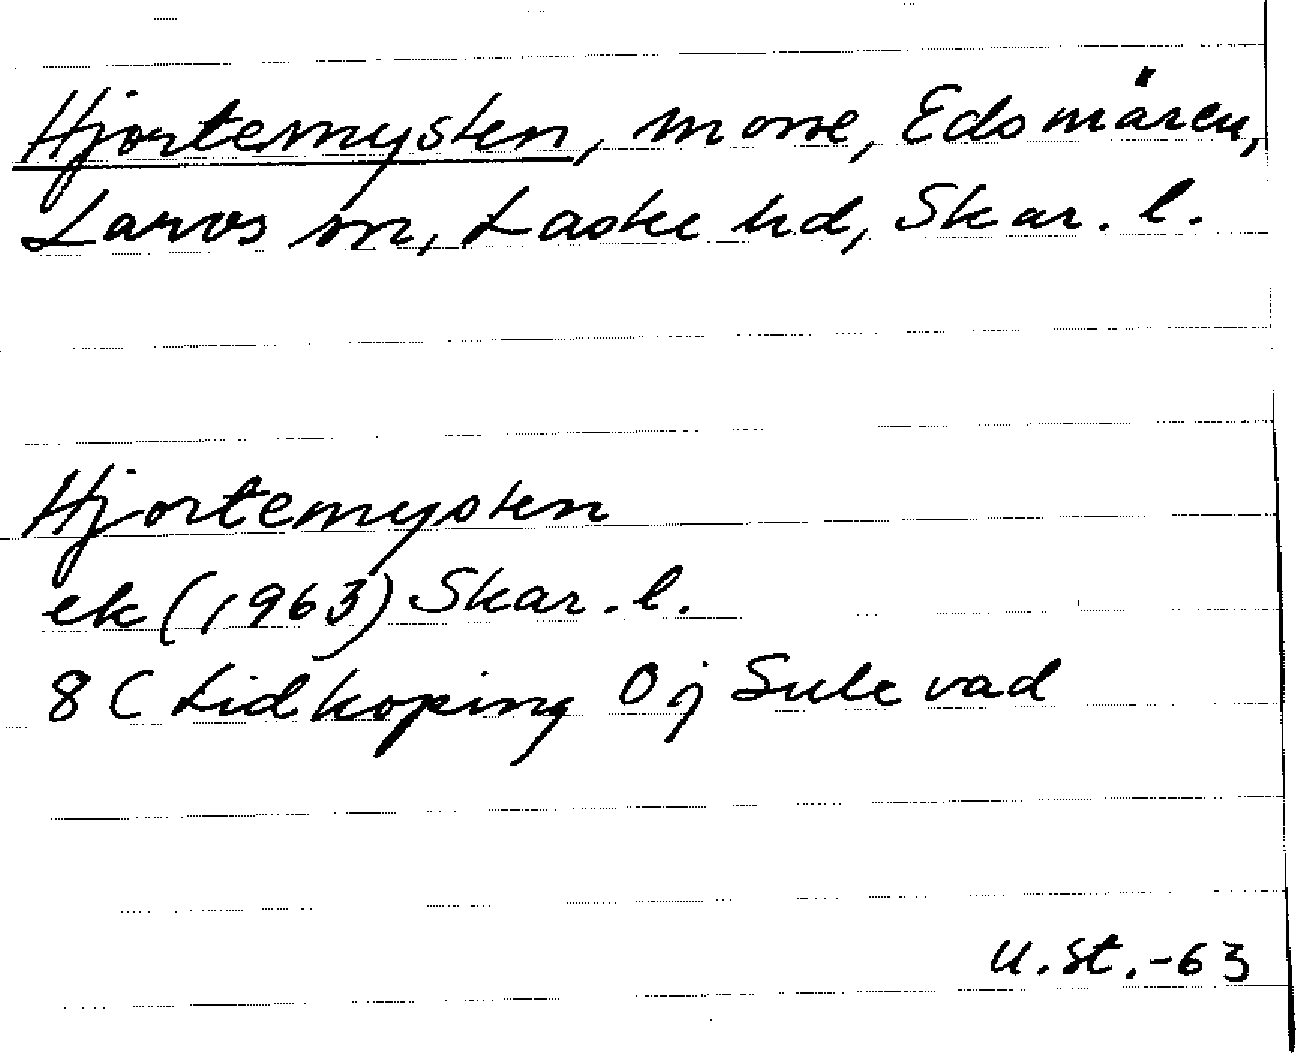 Hjortemysten, mosse, Edsmären,
Larvs sn, Laske hd, Skar. l.
Hjortemysten
ek (1963) Skar. l.
8 C Lidköping 0 j Sulevad
U. St. -63